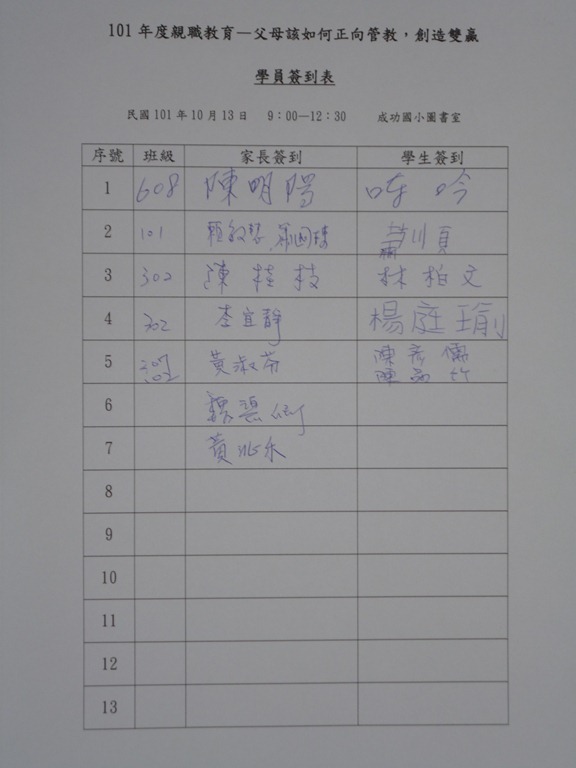 101 年度親職教育—父母該如何正向管教,創造雙贏
學員簽到表
民國 101 年 10 月 13 日 9:00—12:30 成功國小圖書室
序號 班級 家長簽到 學生簽到
1 608 陳明陽
2 101
3 302 陳桂枝 林柏文
4 302 李宜靜 楊庭瑜
5 307 黃淑芬 陳彥儒
102
6
7
8
9
10
11
12
13